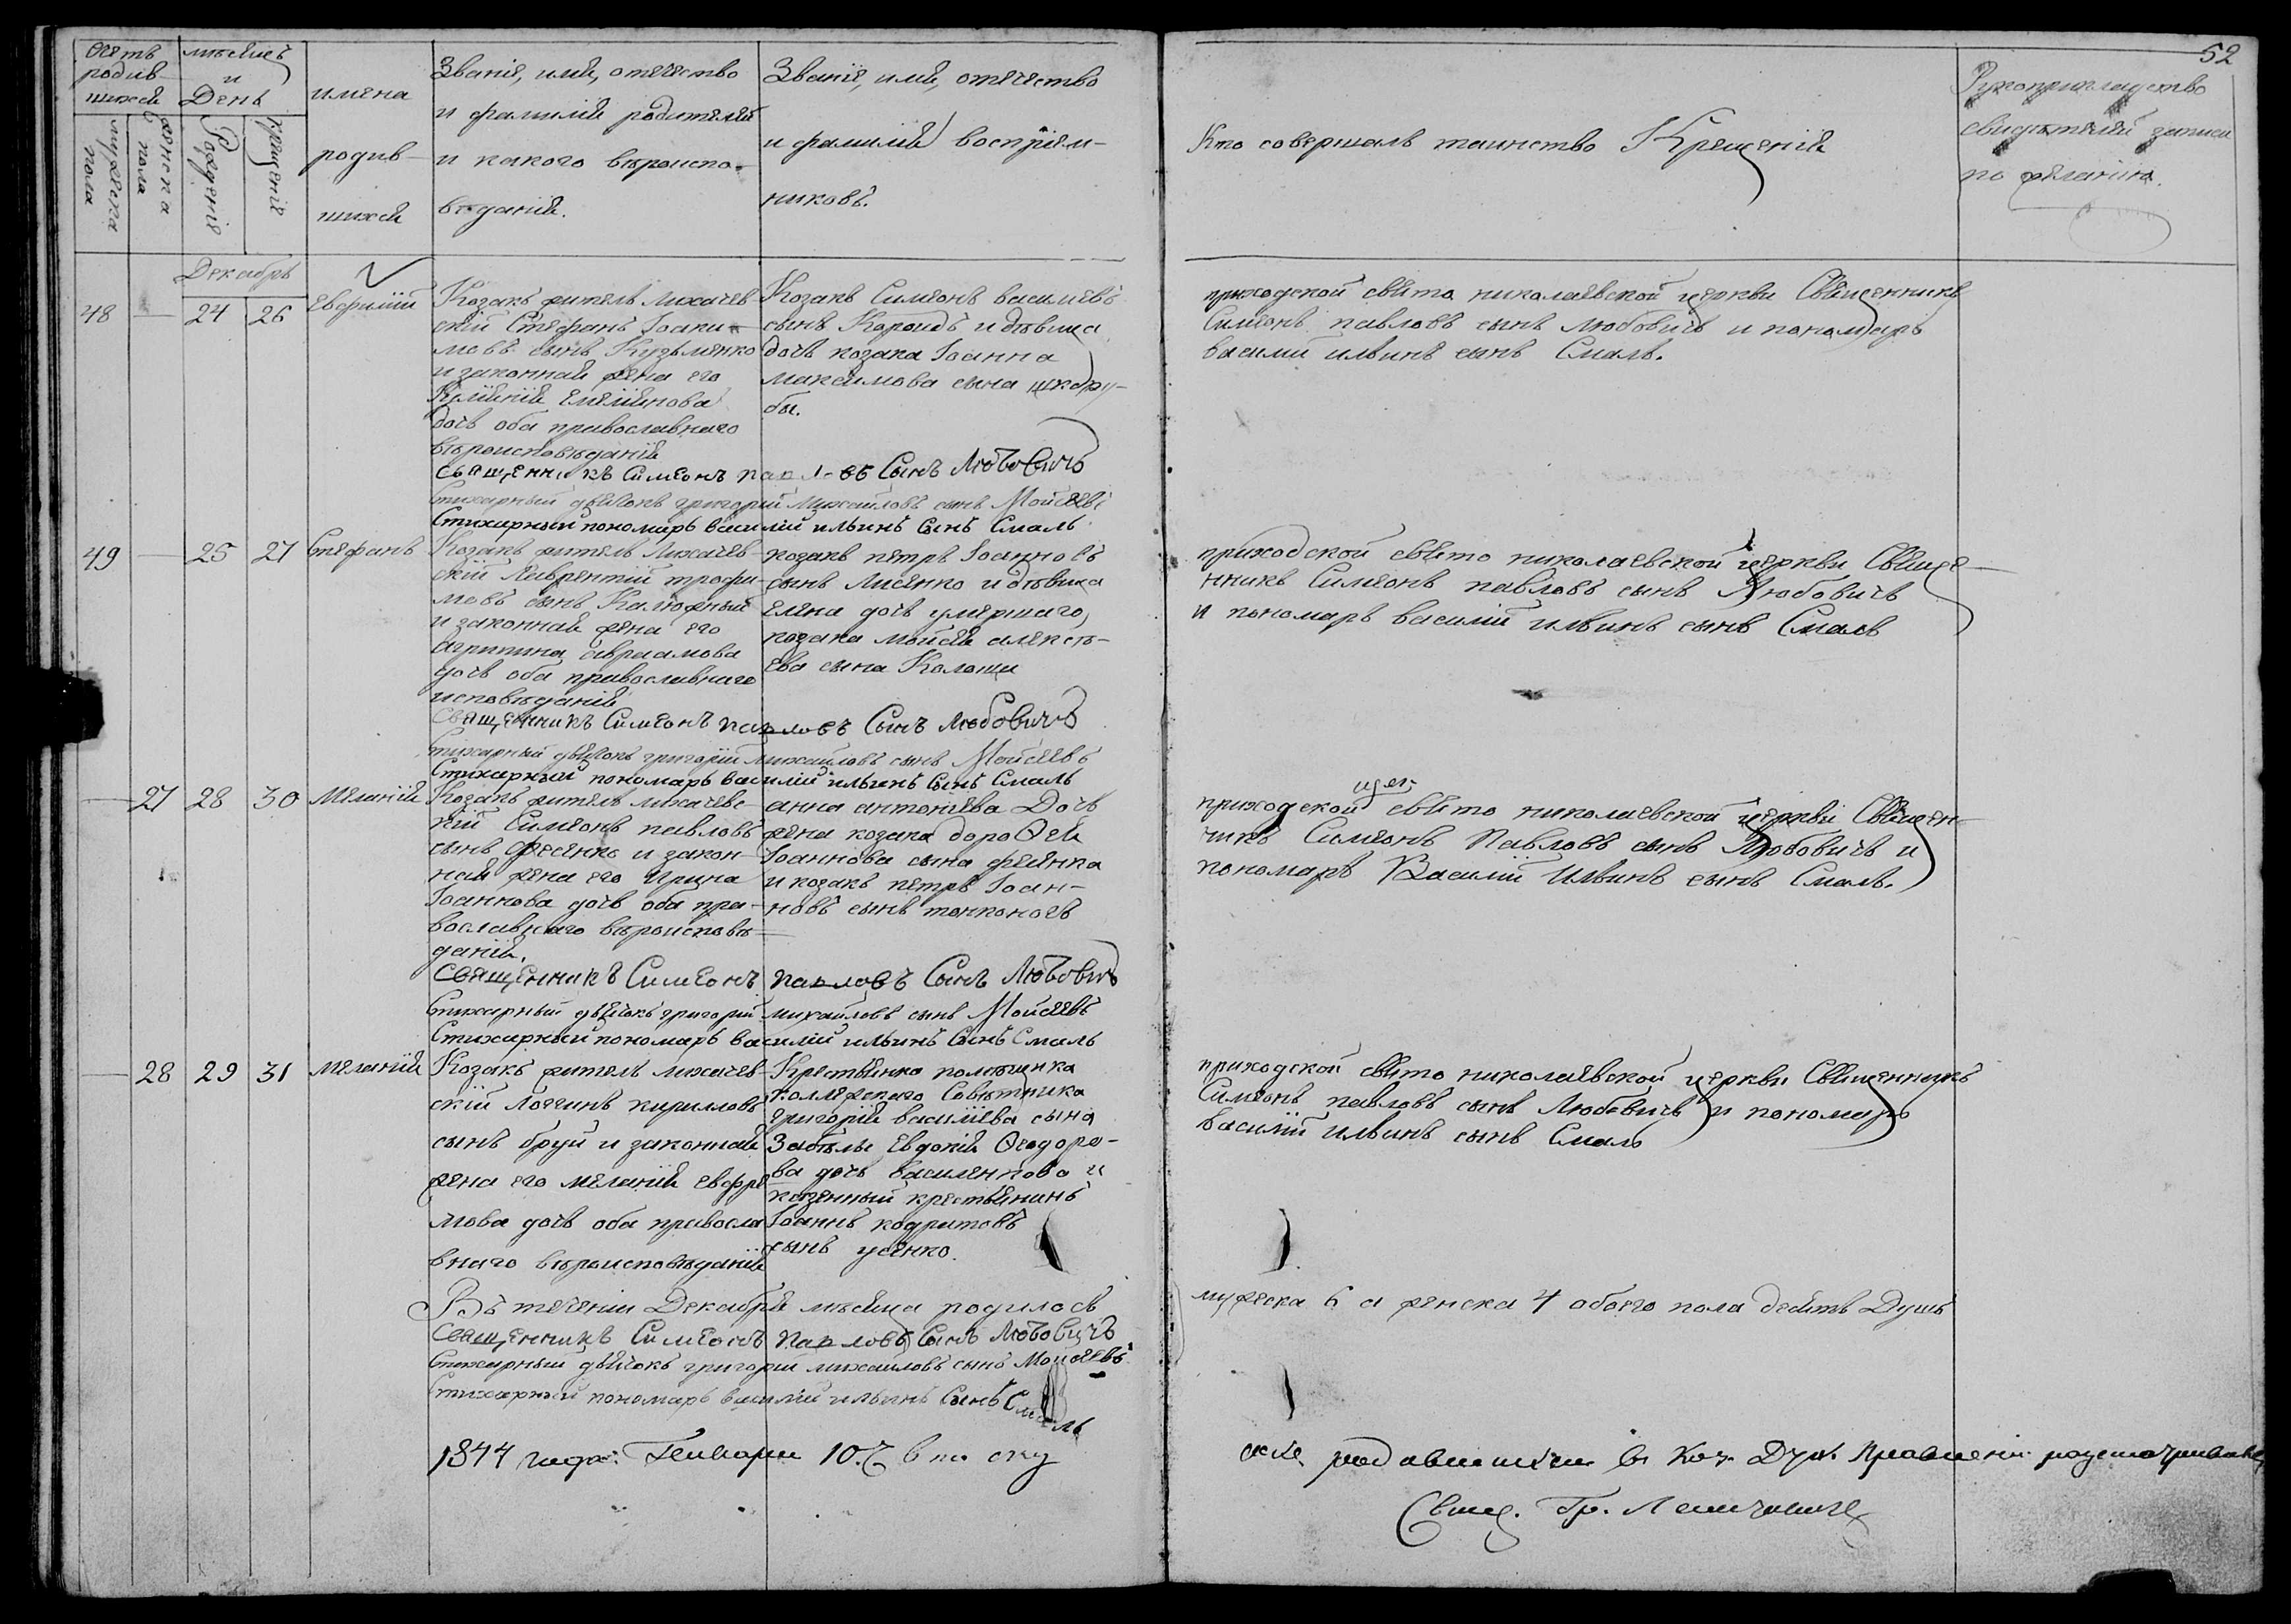 52
Счетъ родив-шихся
мѣсяцъ и День
имена родив-шихся
Званіе, имя, отечество
и фамилія родителей
и какого вѣроиспо-
вѣданія.
Званіе, имя, отечество
и фамилія воспріем-
никовъ.
Кто совершалъ таинство Крещенія
Рукоприкладство
свидѣтелей записи
по желанію.
мужеска пола
женска пола
Рожденія
крещенія
Декабрь
48 — 24 26 Евфимій
Козакъ житель Лихачев-
скій Стефанъ Іоаки-
мовъ сынъ Кузьменко
и законная жена его
Емеліянова
дочь оба православнаго
вѣроисповѣданія
Козакъ Симеонъ василіевъ
сынъ и дѣвица
дочь козака Іоанна
максимова сына шкору-
бы.
приходской свято николаевской церкви Священникъ
Симеонъ павловъ сынъ Любовичь и пономарь
василій ильинъ сынъ Смаль.
Священникъ Симеонъ павловъ Сынъ Любовичъ
Стихарный дьячокъ григорій Михайловъ сынъ Мойсеевъ
Стихарный пономарь василій ильинъ Сынъ Смаль
49 — 25 27 Стефанъ
Козакъ житель Лихачев-
скій Лаврентій трофи-
мовъ сынъ Калюжный
и законная жена его
Агрипина авраамова
дочь оба православнаго
исповѣданія
козакъ петръ Іоанновъ
сынъ Лисенко и дѣвица
елена дочь умершаго
козака мойсея алексѣ-
ева сына Калоши
приходской свято николаевской церкви Священ-
нникъ Симеонъ павловъ сынъ Любовичь
и пономарь василій ильинъ сынъ Смаль
Священникъ Симеонъ павловъ Сынъ Любовичъ
Стихарный дьячокъ григорій михайловъ сынъ Мойсеевъ
Стихарный пономарь василій ильинъ Сынъ Смаль
— 27 28 30 Меланія
Козакъ житель лихачевс-
кій Симеонъ павловъ
сынъ Фесенко и закон-
ная жена его Ирина
Іоаннова дочь оба пра-
вославнаго вѣроисповѣ-
данія.
анна антоніева Дочь
жена козака дороѳея
Іоаннова сына фесенка
и козакъ петръ Іоан-
новъ сынъ тонконогъ
приходской свято николаевской церкви Священ-
никъ Симеонъ Павловъ сынъ Любовичь и
пономарь Василій Ильинъ сынъ Смаль.
Священникъ Симеонъ павловъ Сынъ Любовичъ
Стихарный дьячокъ григорій михайловъ сынъ Мойсеевъ
Стихарный пономарь василій ильинъ Сынъ Смаль
— 28 29 31 Меланія
Козакъ житель лихачев-
скій Логгинъ кирилловъ
сынъ бруй и законная
жена его меланія евфре
мова дочь оба правосла
внаго вѣроисповѣданія
Крестьянка помѣщика
коллежскаго Совѣтника
григорія василіева сына
Забѣлы Евдокія Ѳеодоро-
ва дочь василенкова и
казенный крестьянинъ
Іоаннъ кодратовъ
сынъ усенко.
приходской свято николаевской церкви Священникъ
Симеонъ павловъ сынъ Любовичь и пономарь
василій ильинъ сынъ Смаль
Въ теченіи Декабря мѣсяца родилось мужеска 6 а женска 4 обоего пола десять Душъ
Священникъ Симеонъ павловъ Сынъ Любовичъ
Стихарный дьячокъ григорій михайловъ сынъ Мойсеевъ
Стихарный пономарь василій ильинъ Сынъ Смаль
1844 года: Генваря 10.